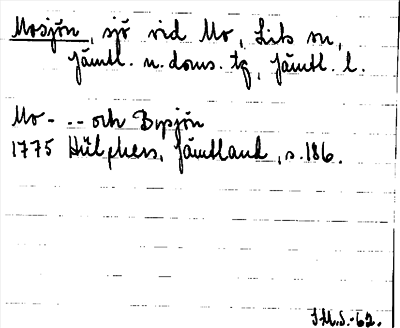 Mosjön, sjö vid Mo, Lits sn,
Jämtl. n. doms. tg, Jämtl. l.
Mo- -- och Bysjön
1775 Hülphers, Jämtland, s. 186.
J.M.S.-62.